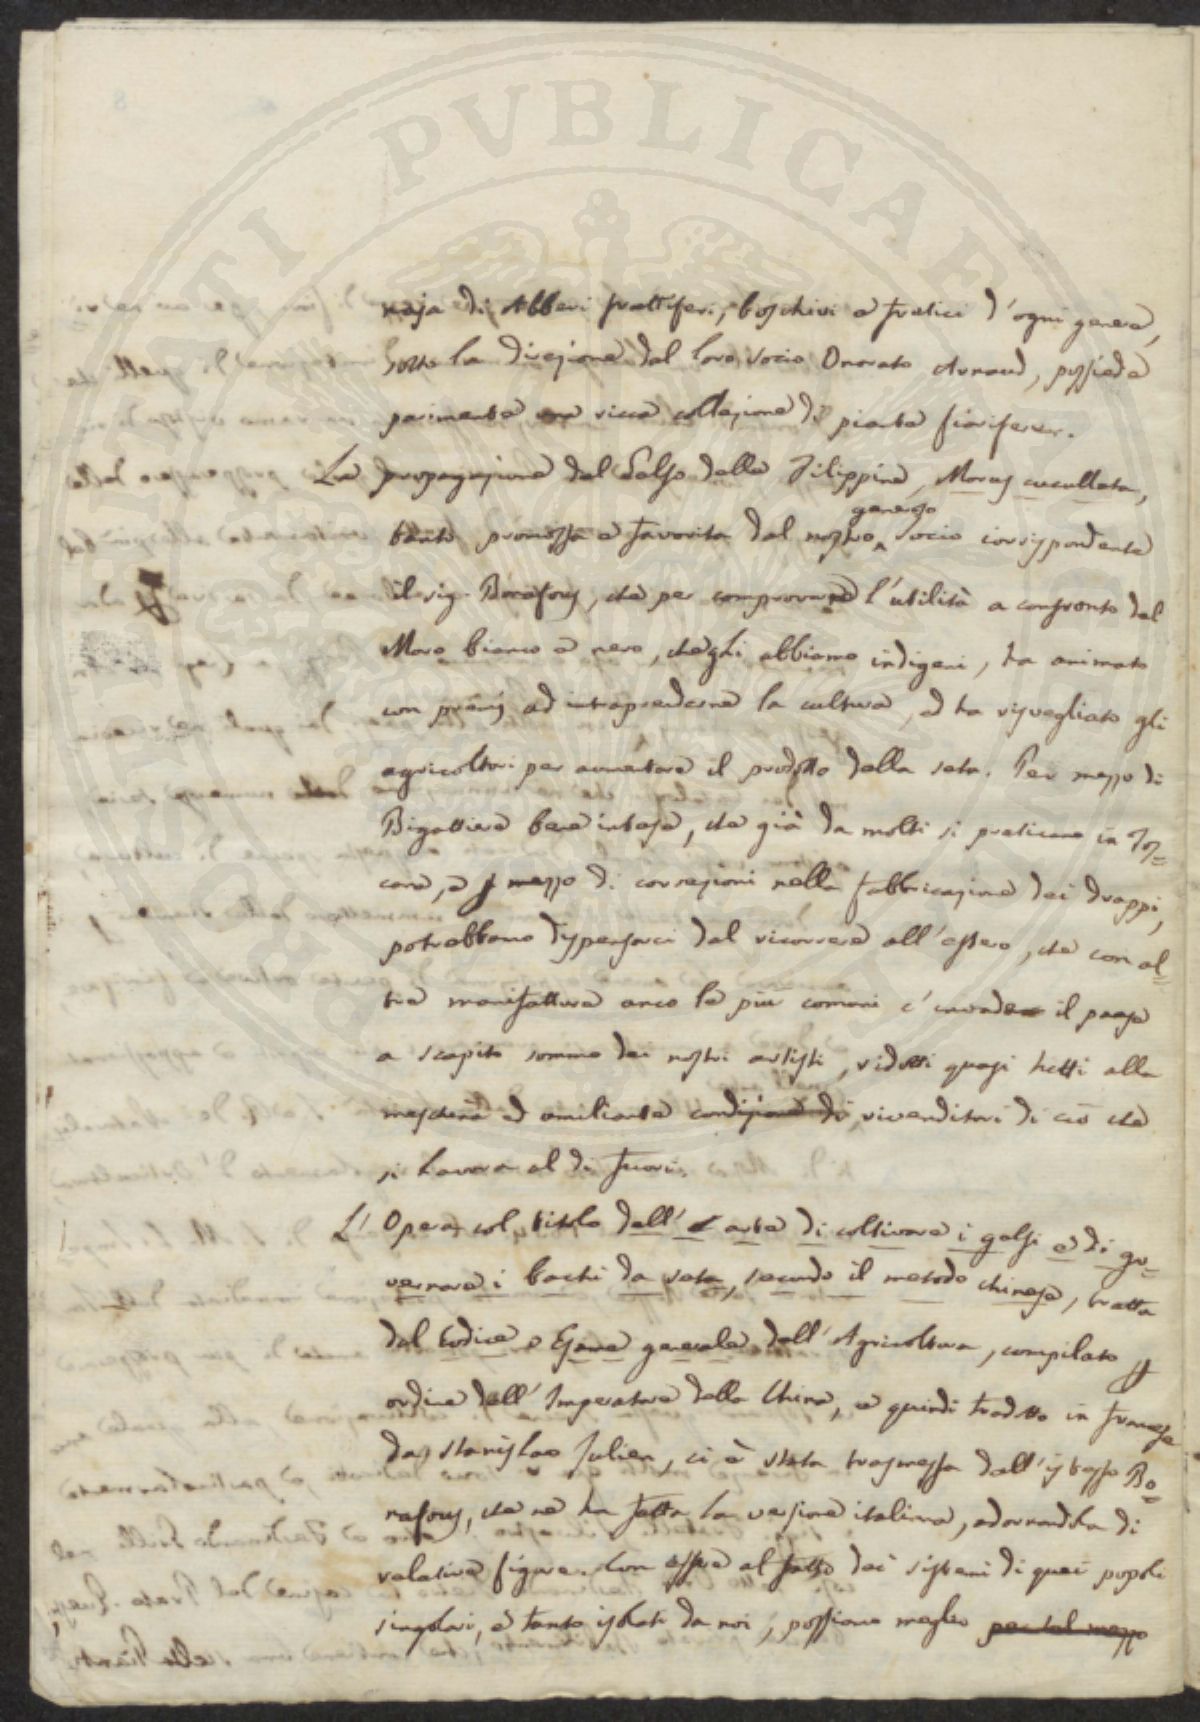 naja di Alberi fruttiferi, boschivi e frutici d'ogni genere,
sotto la direzione del loro socio Onorato Arnaud, possiede
parimente una ricca collezione di piante fiorifere.
La propagazione del Gelso delle Filippine, Morus cucullata,
tanto promossa e favorita dal nostro generoso socio corrispondente
il sig. Bonafous, che per comprovare l'utilità a confronto del
Moro bianco e nero, che gli abbiamo indigeni, ha animato
con premj ad intraprenderne la cultura, ed ha risvegliato gli
agricoltori per aumentare il prodotto della seta. Per mezzo di
Bigattiere bene intese, che già da molti si praticano in Tos=
cana, e p mezzo di correzioni nella fabbricazione dei drappi,
potrebbamo dispensarci dal ricorrere all'estero, che con al=
tre manifatture anco le più comuni c'invade il paese
a scapito sommo dei nostri artisti, ridotti quasi tutti alla
meschina ed umiliante condizione di rivenditori di ciò che
si lavora al di fuori.
L'Opera col titolo dell'arte di coltivare i gelsi e di go=
vernare i bachi da seta, secondo il metodo chinese, tratta
dal Codice o Esame generale dell'Agricoltura, compilato p
ordine dell'Imperatore della China, e quindi tradotto in francese
da Stanislao Julien, ci è stata trasmessa dall'istesso Bo=
nafous, che ne ha fatta la versione italiana, adornandola di
relative figure. Con essere al fatto dei sistemi di quei popoli
singolari, e tanto isolati da noi, possiamo meglio per tal mezzo
PVBLICAE